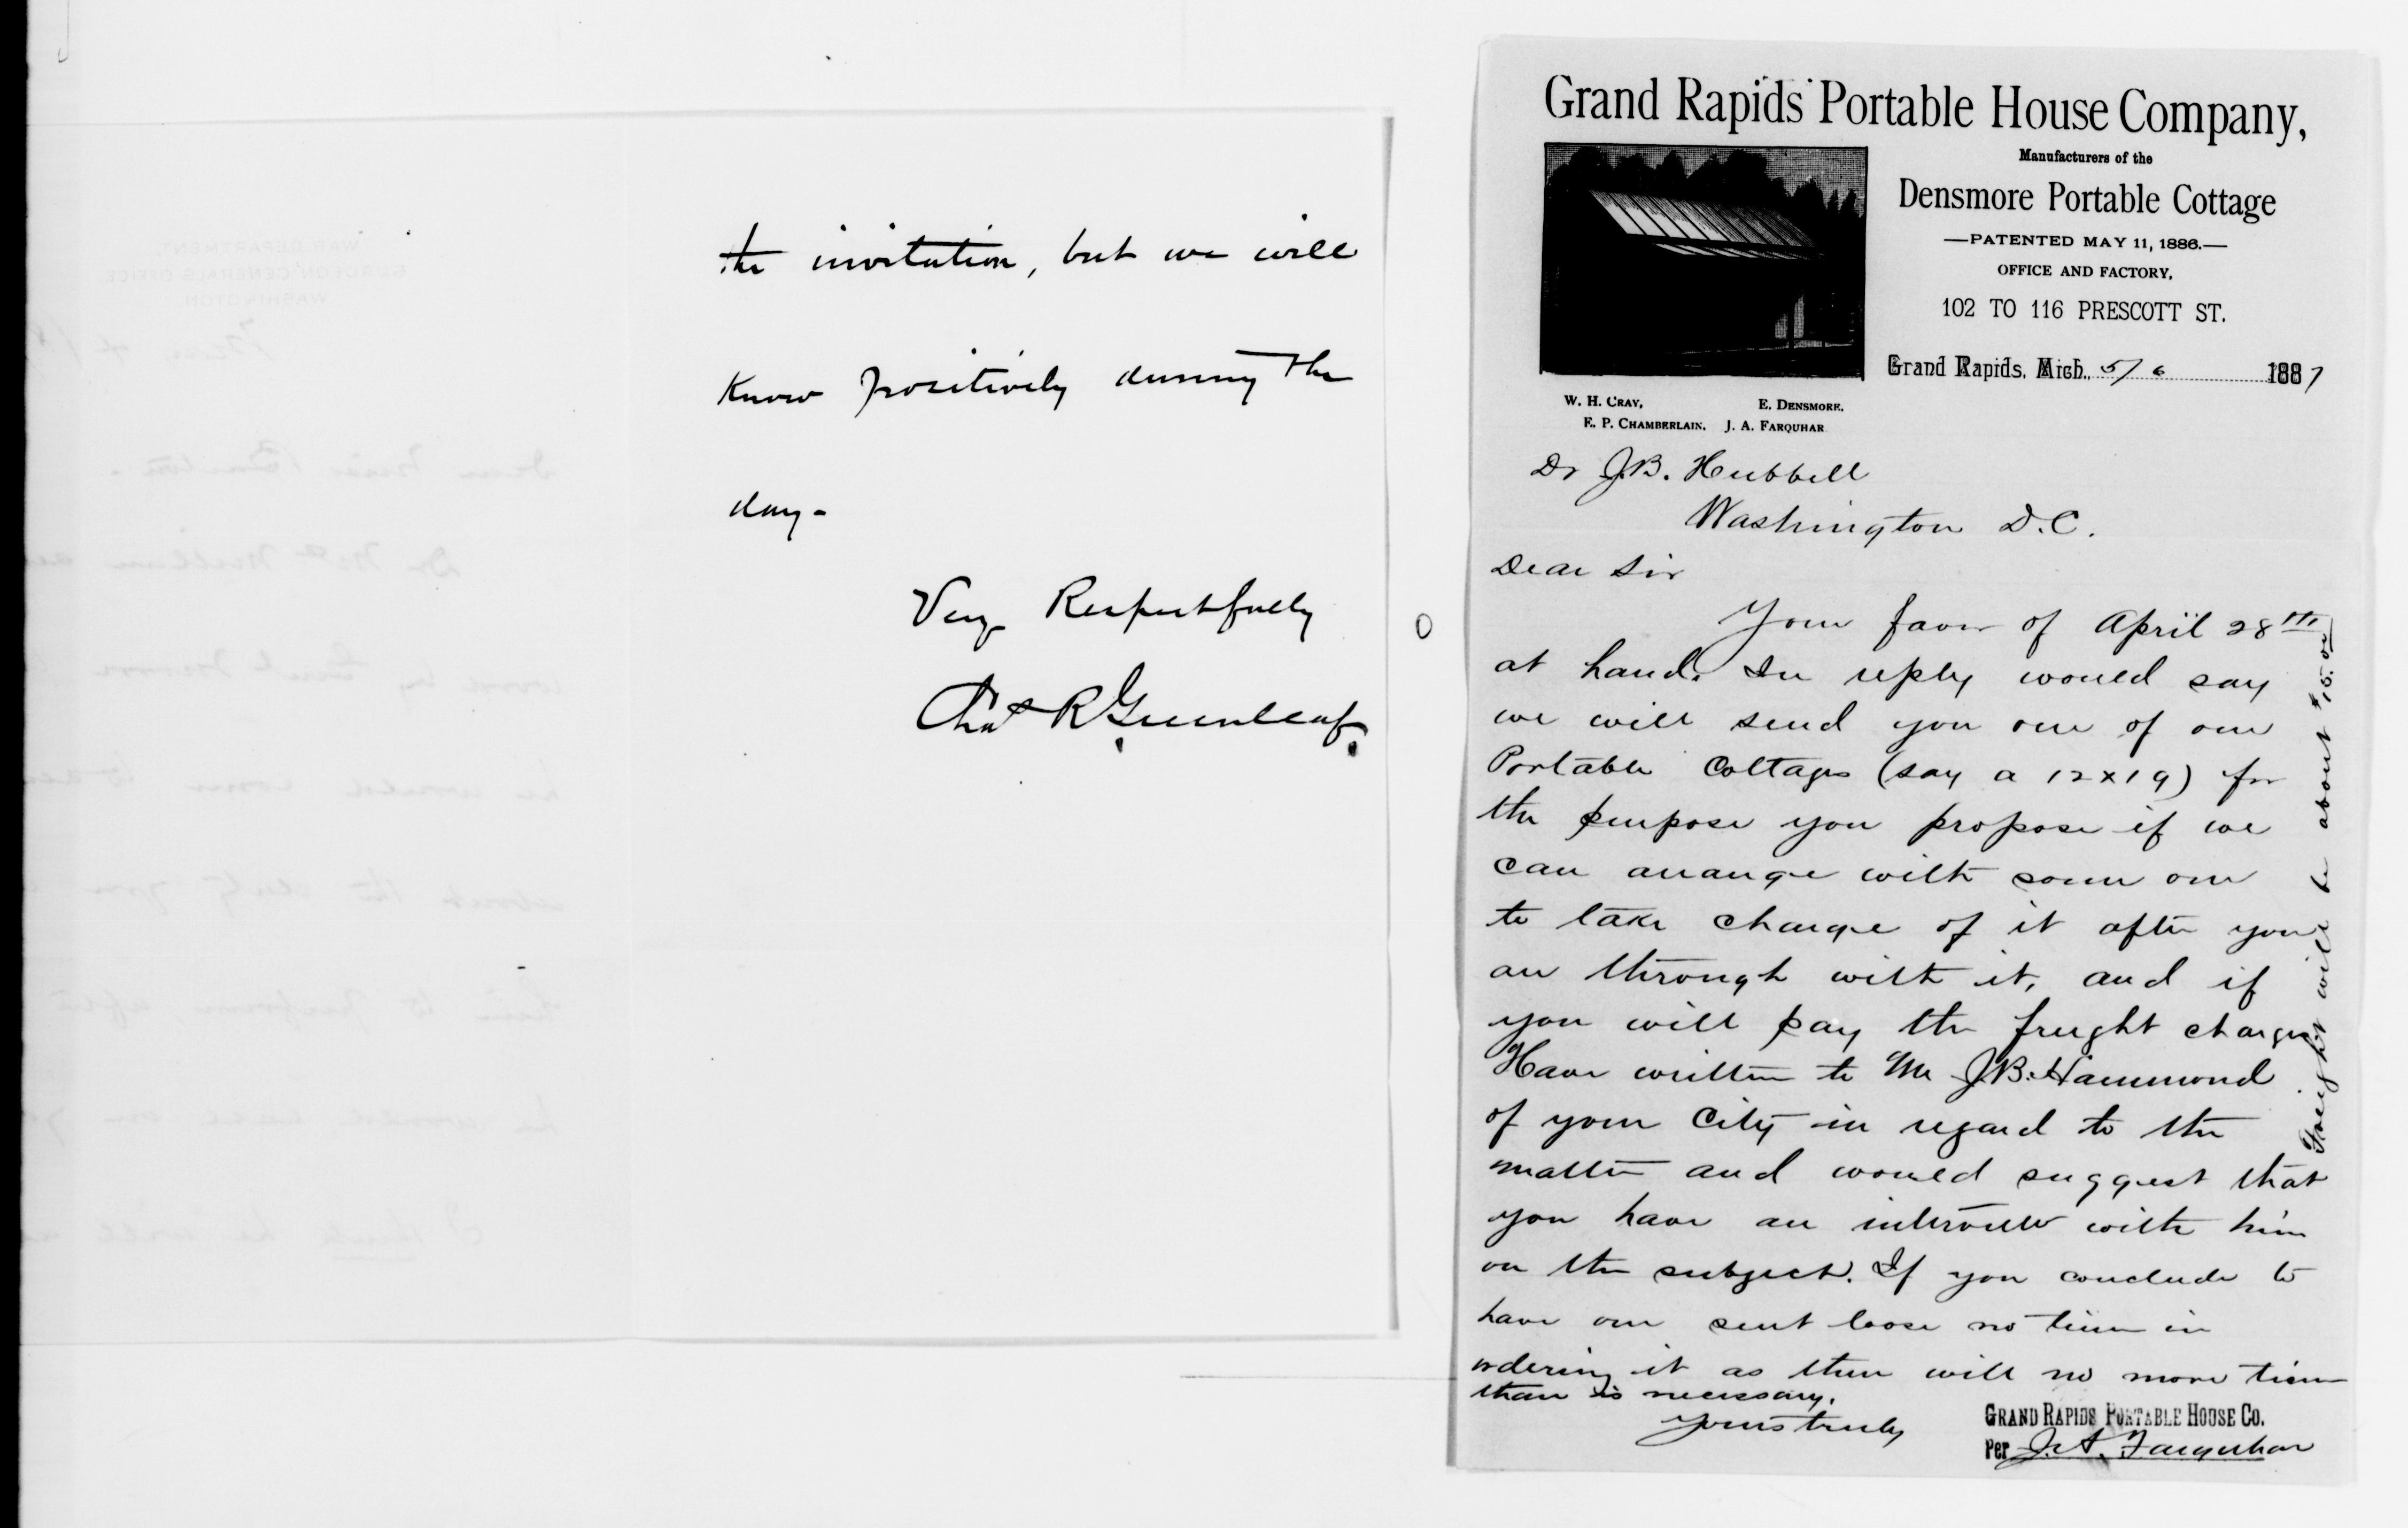 the invitation, but we will
know positively during the
day-
Very Respectfully
Chas R Greenleaf.
Grand Rapids Portable House Company,
Manufacturers of the
Densmore Portable Cottage
—PATENTED MAY 11, 1886.—
OFFICE AND FACTORY,
102 TO 116 PRESCOTT ST.
Grand Rapids, Mich., 5/6 1887
W. H. CRAY, E. DENSMORE.
E. P. CHAMBERLAIN. J. A. FARQUHAR
Dr J.B. Hubbell
Washington D.C.
Dear Sir
Your favor of April 28th
at hand. In reply would say
we will send you one of our
Portable Cottages (say a 12x19) for
the purpose you propose if we
can arrange with some one
to take charge of it after you
are through with it, and if
you will pay the freight charges
Have written to Mr J.B. Hammond
of your City in regard to the
matter and would suggest that
you have an interview with him
on the subject. If you conclude to
have one sent loose no time in
ordering it as there will no more time
than is necessary.
Yours truly
GRAND RAPIDS PORTABLE HOUSE CO.
Per J.A. Farquhar
Freight will be about $15.00